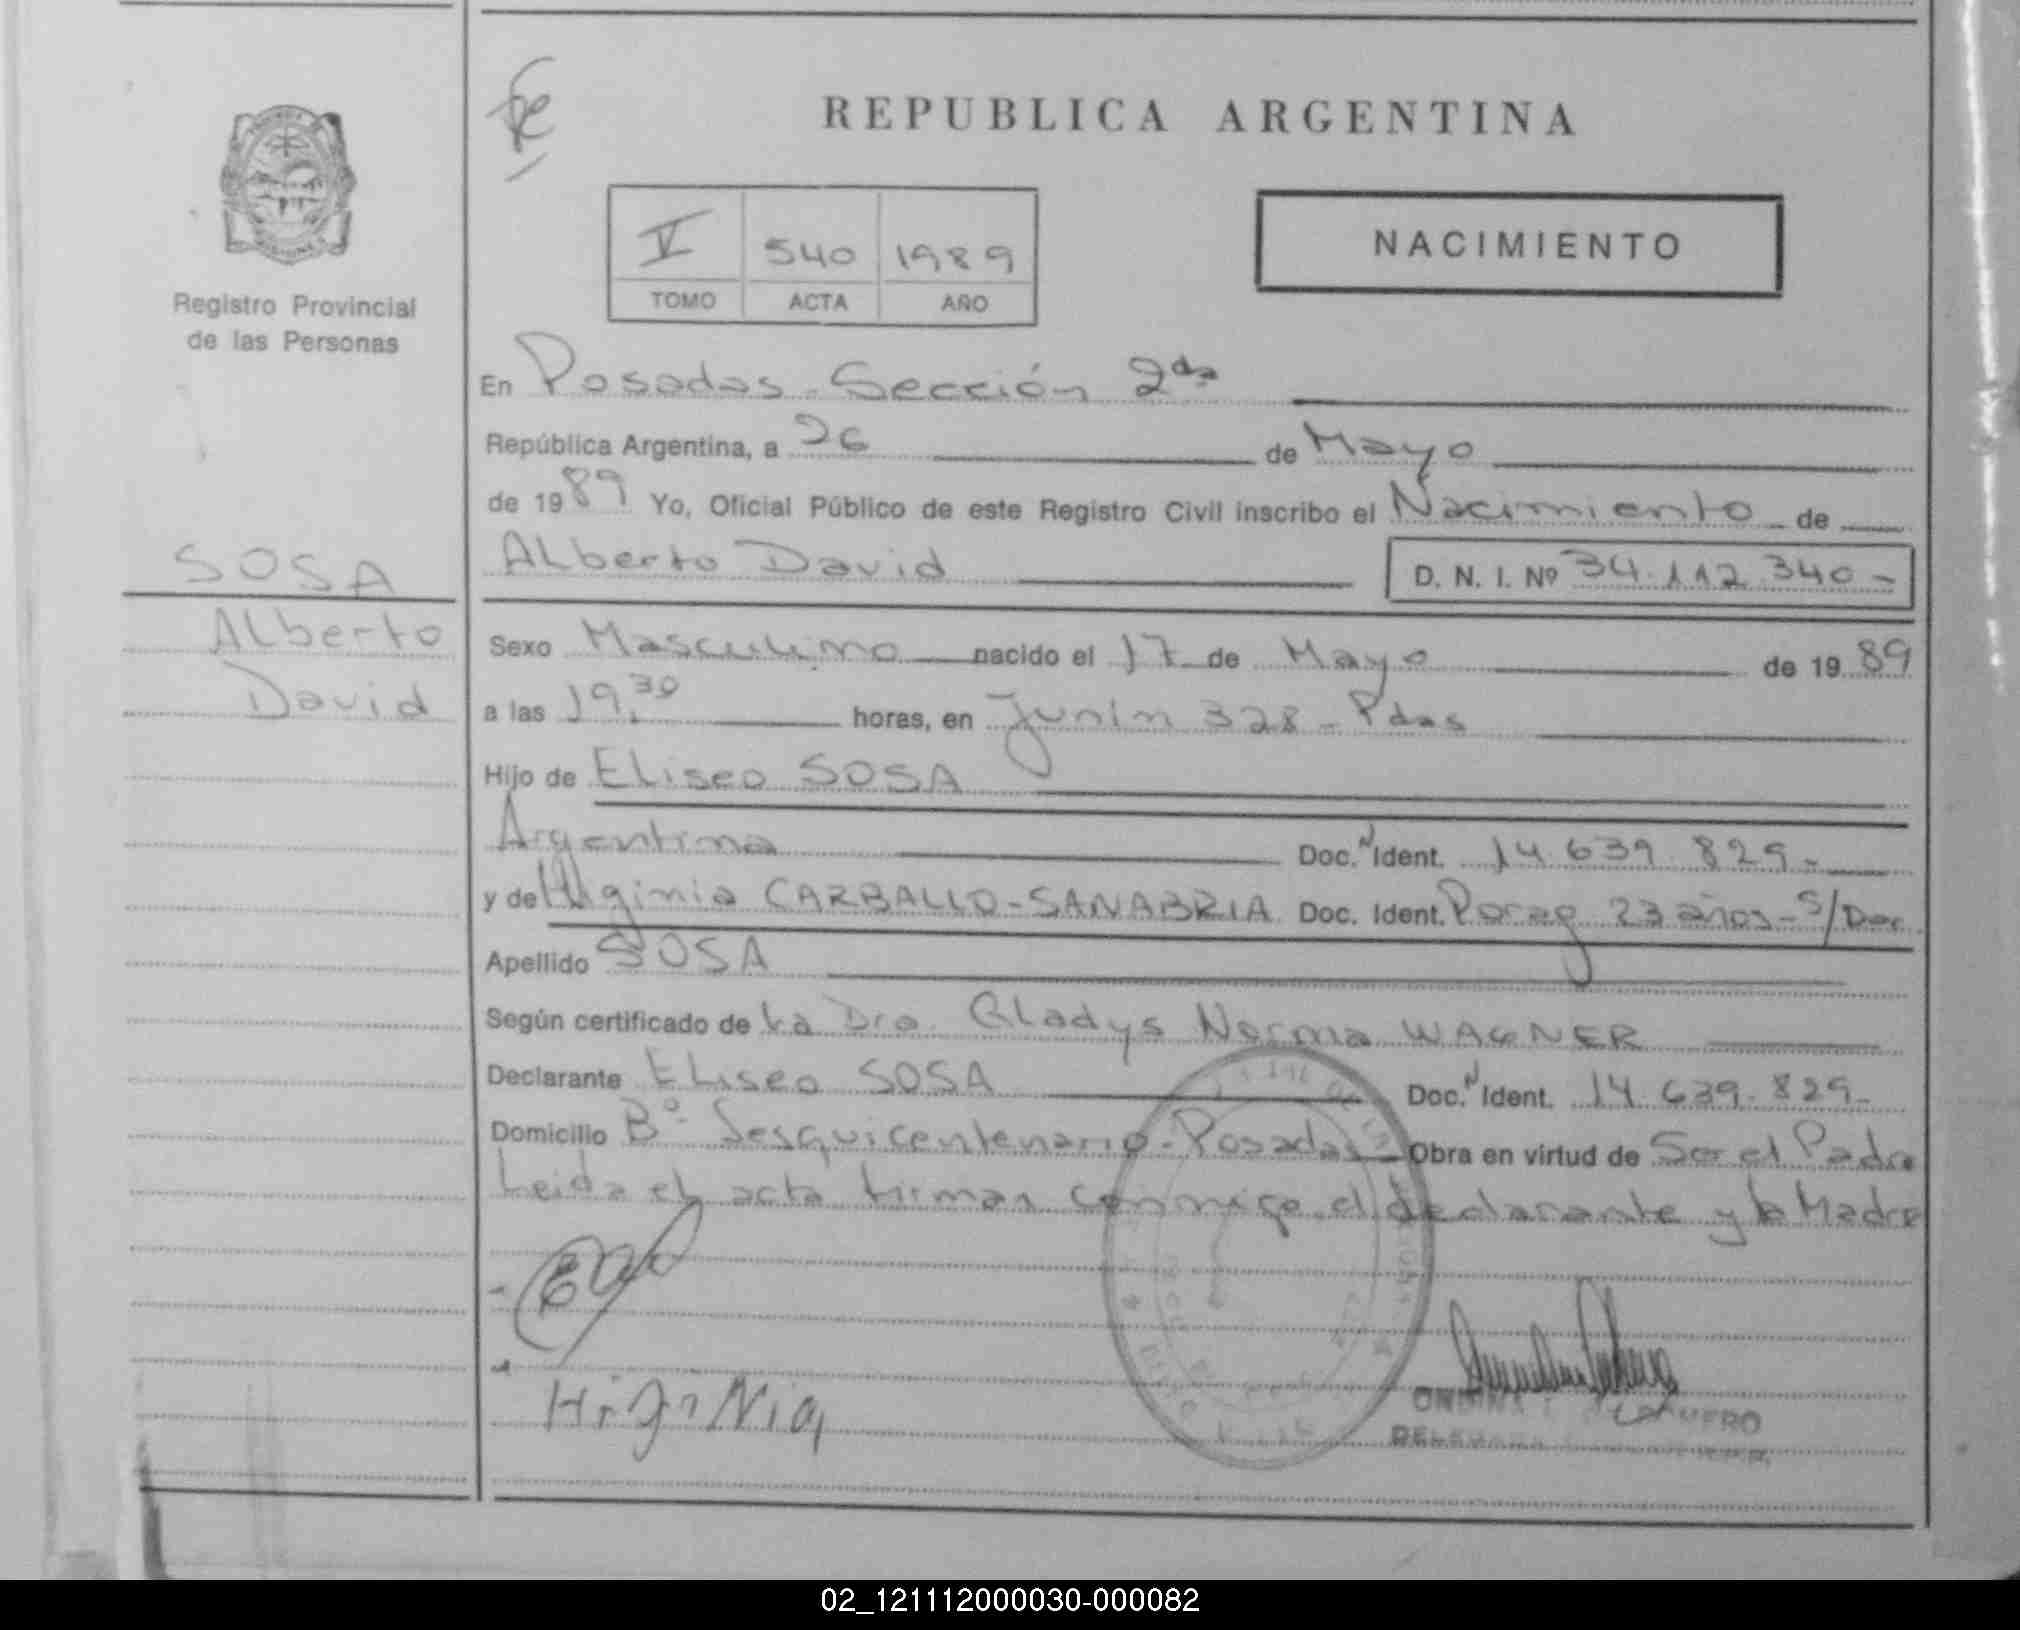 REPUBLICA ARGENTINA
V 540 1989
TOMO ACTA AÑO
NACIMIENTO
Registro Provincial
de las Personas
En Posadas - Sección 2da
República Argentina, a 26 de Mayo
de 1989 Yo, Oficial Público de este Registro Civil inscribo el Nacimiento de
Alberto David D. N. I. Nº 34.112.340-
SOSA
Alberto
David
Sexo Masculino nacido el 17 de Mayo de 1989
a las 19,30 horas, en Junín 328 - Pdas
Hijo de Eliseo SOSA
Argentina Doc. N Ident. 14.639.829-
y de Higinia CARBALLO-SANABRIA Doc. Ident. Parag 23 años - S/Doc.
Apellido SOSA
Según certificado de La Dra. Gladys Norma WAGNER
Declarante Eliseo SOSA Doc. N Ident. 14.639.829-
Domicilio Bº Sesquicentenario - Posadas - Obra en virtud de Ser el Padre
Leida el acta firman conmigo el declarante y la Madre
HigiNia
02_121112000030-000082